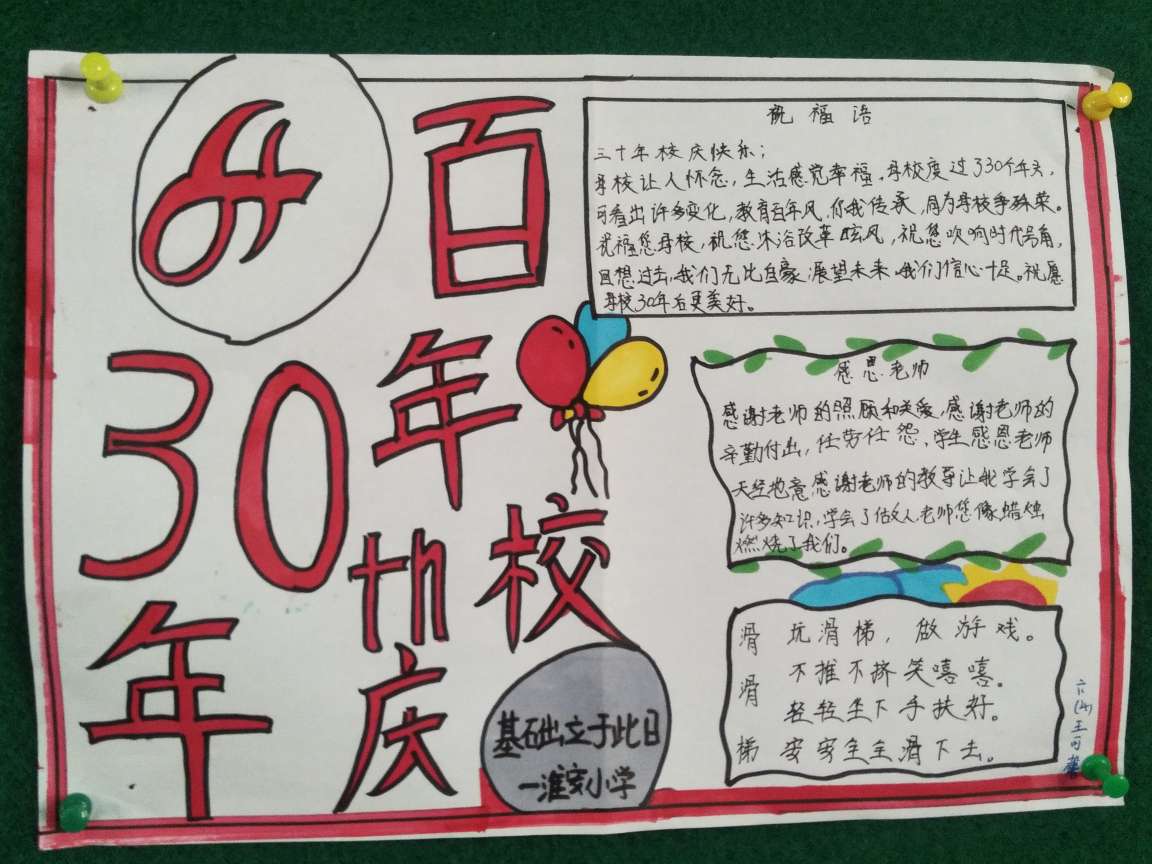 百年校庆
30th
年
祝福语
三十年校庆快乐；
母校让人怀念，生活感觉幸福。母校度过了30个年头，
可看出许多变化，教育百年风，你我传承，同为母校争殊荣。
祝福您母校，祝您沐浴改革晓风，祝您吹响时代号角，
回想过去，我们无比自豪，展望未来，我们信心十足。祝愿
母校30年后更美好。
感恩老师
感谢老师的照顾和关爱，感谢老师的
辛勤付出，任劳任怨，学生感恩老师
天经地意感谢老师的教导让我学会了
许多知识，学会了做人老师您像蜡烛
燃烧了我们。
滑滑梯
玩滑梯，做游戏。
不推不挤笑嘻嘻。
轻轻坐下手扶好。
安安全全滑下去。
基础立于此日
一淮安小学
六(4)王可馨